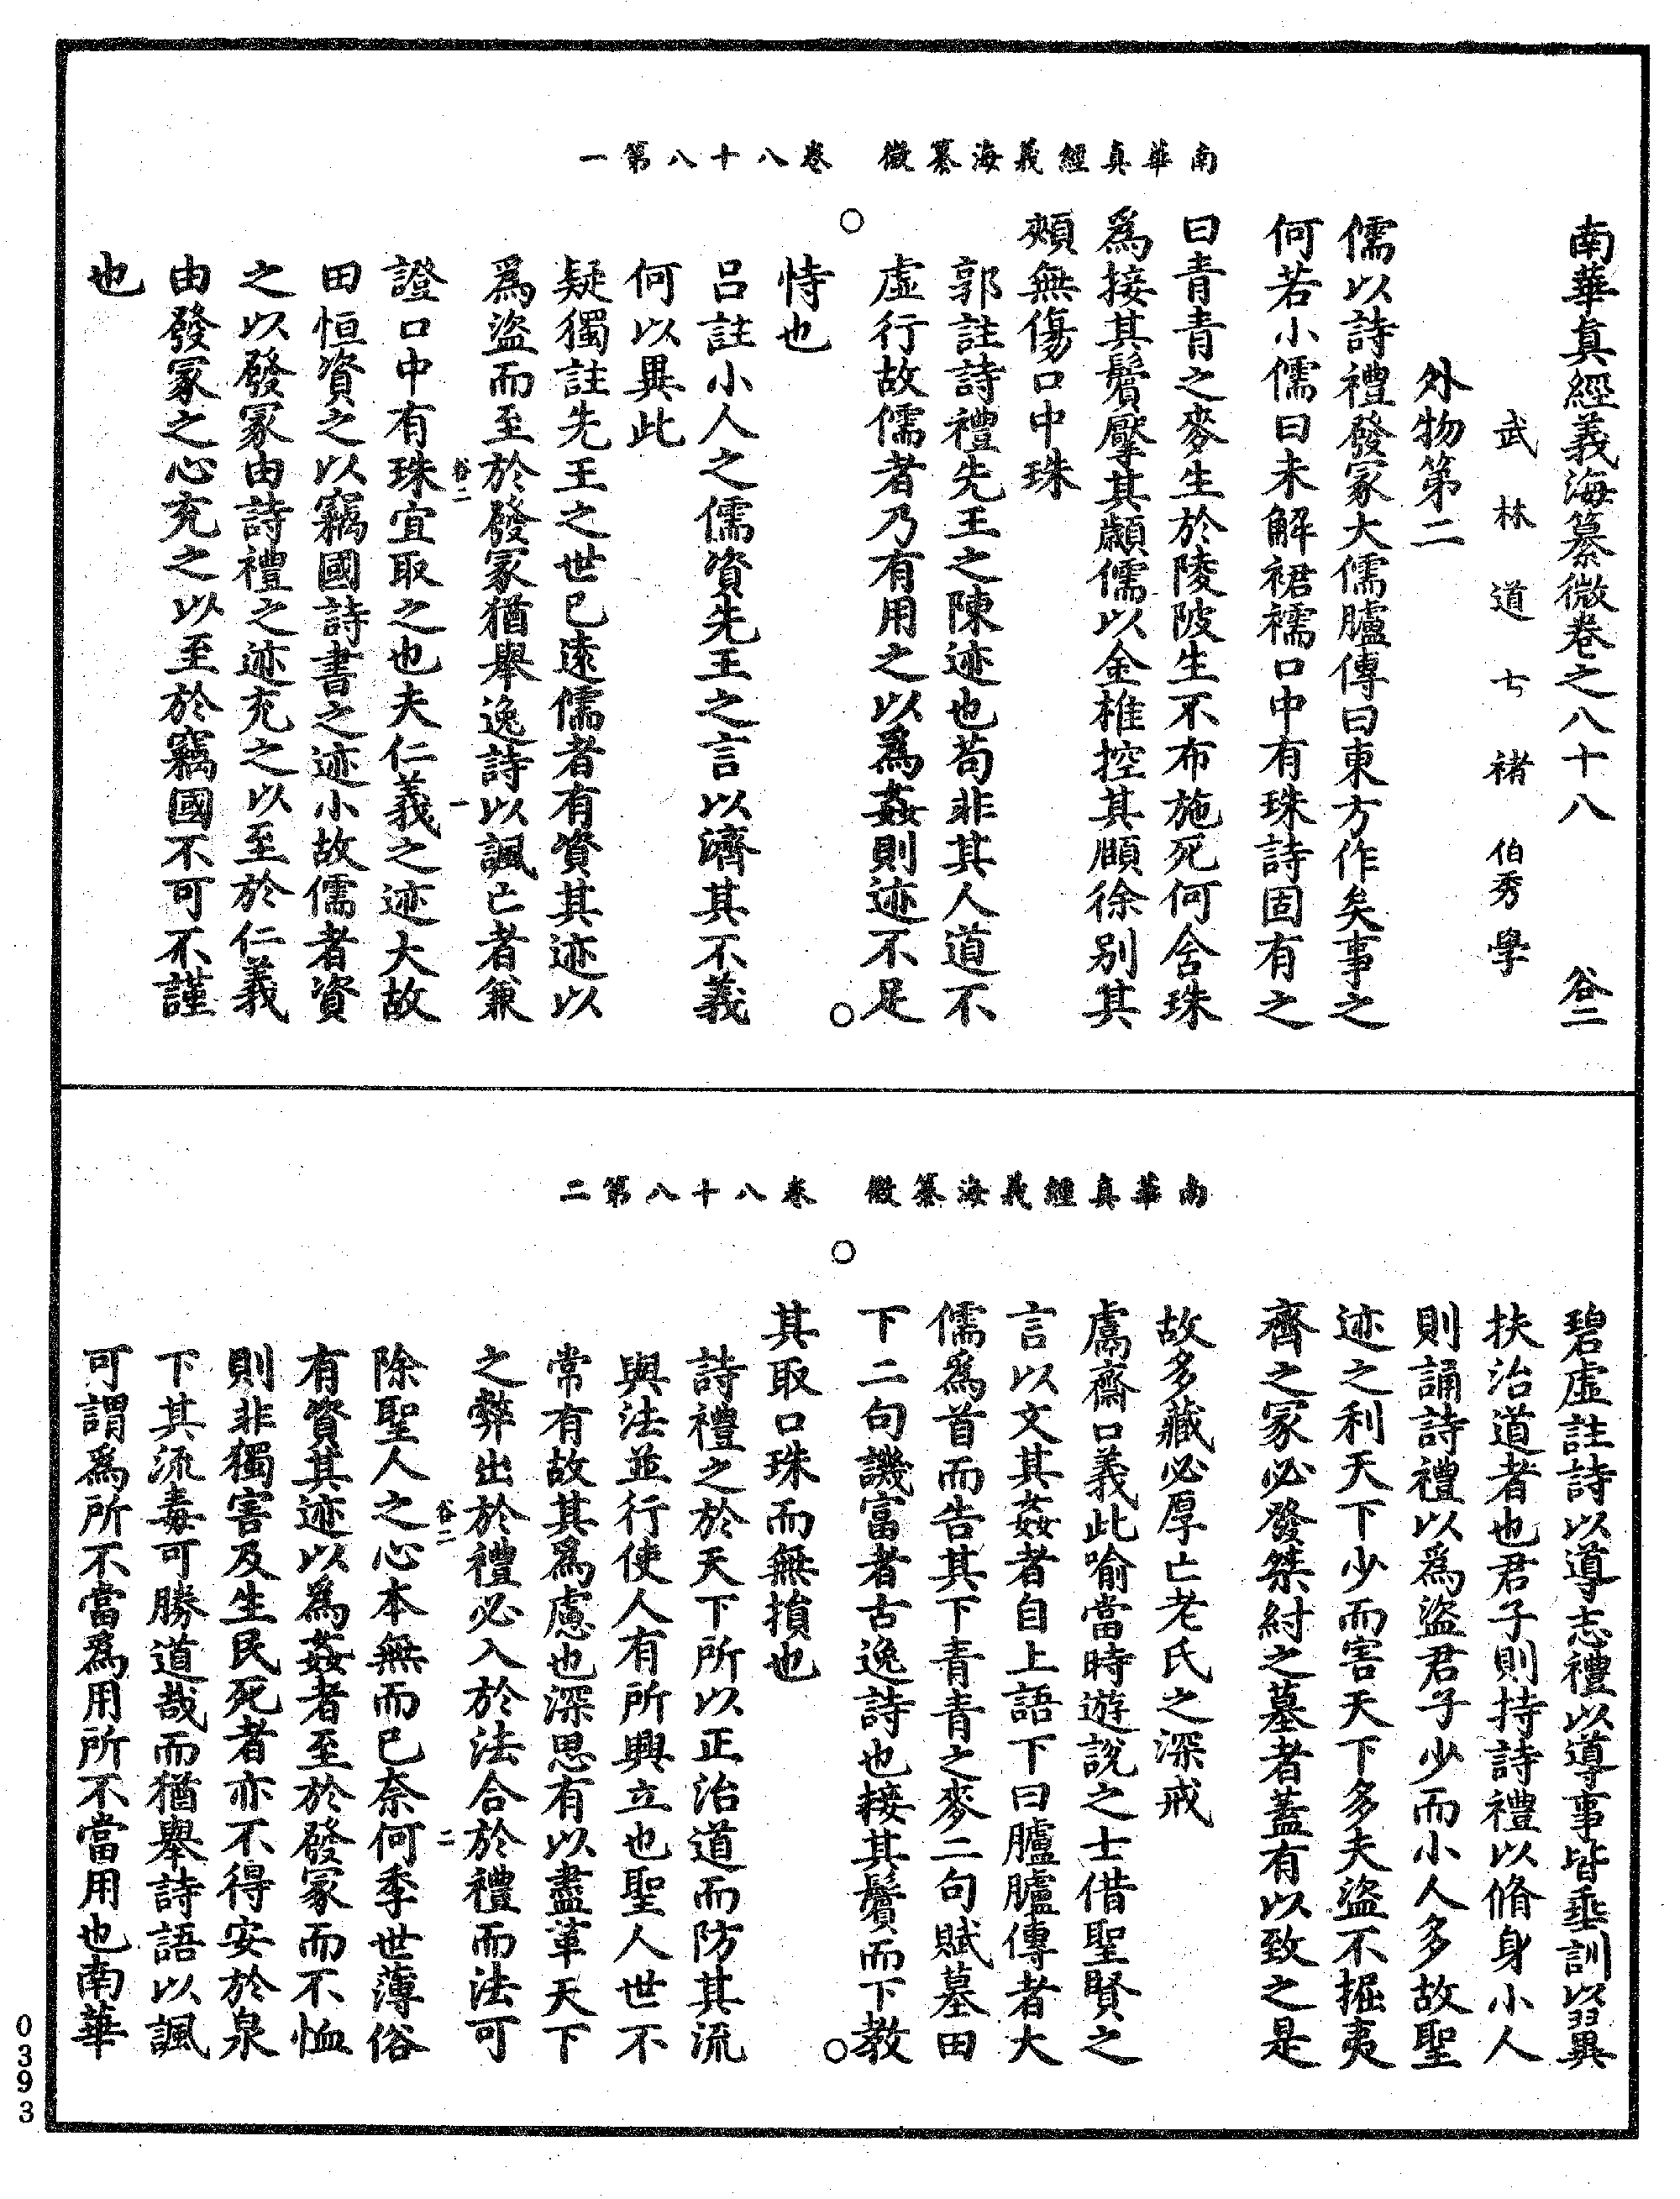 南華真經義海纂微　卷八十八第一
南華真經義海纂微卷之八十八　谷二
武林道士褚伯秀學
外物第二
儒以詩禮發冢大儒臚傳曰東方作矣事之
何若小儒曰未解裙襦口中有珠詩固有之
曰青青之麥生於陵陂生不布施死何舍珠
爲接其鬢擪其顪儒以金椎控其頤徐別其
頰無傷口中珠
郭註詩禮先王之陳迹也苟非其人道不
虛行故儒者乃有用之以爲姦則迹不足
恃也
呂註小人之儒資先王之言以濟其不義
何以異此
疑獨註先王之世已遠儒者有資其迹以
爲盜而至於發冢猶舉逸詩以諷亡者兼
谷二　一
證口中有珠宜取之也夫仁義之迹大故
田恒資之以竊國詩書之迹小故儒者資
之以發冢由詩禮之迹充之以至於仁義
由發冢之心充之以至於竊國不可不謹
也
南華真經義海纂微　卷八十八第二
碧虛註詩以導志禮以導事皆垂訓以翼
扶治道者也君子則持詩禮以脩身小人
則誦詩禮以爲盜君子少而小人多故聖
迹之利天下少而害天下多夫盜不掘夷
齊之冢必發桀紂之墓者蓋有以致之是
故多藏必厚亡老氏之深戒
鬳齋口義此喻當時遊說之士借聖賢之
言以文其姦者自上語下曰臚臚傳者大
儒爲首而告其下青青之麥二句賦墓田
下二句譏富者古逸詩也接其鬢而下教
其取口珠而無損也
詩禮之於天下所以正治道而防其流
與法並行使人有所興立也聖人世不
常有故其爲慮也深思有以盡革天下
之弊出於禮必入於法合於禮而法可
谷二　二
除聖人之心本無而已奈何季世薄俗
有資其迹以爲姦者至於發冢而不恤
則非獨害及生民死者亦不得安於泉
下其流毒可勝道哉而猶舉詩語以諷
可謂爲所不當爲用所不當用也南華
0393